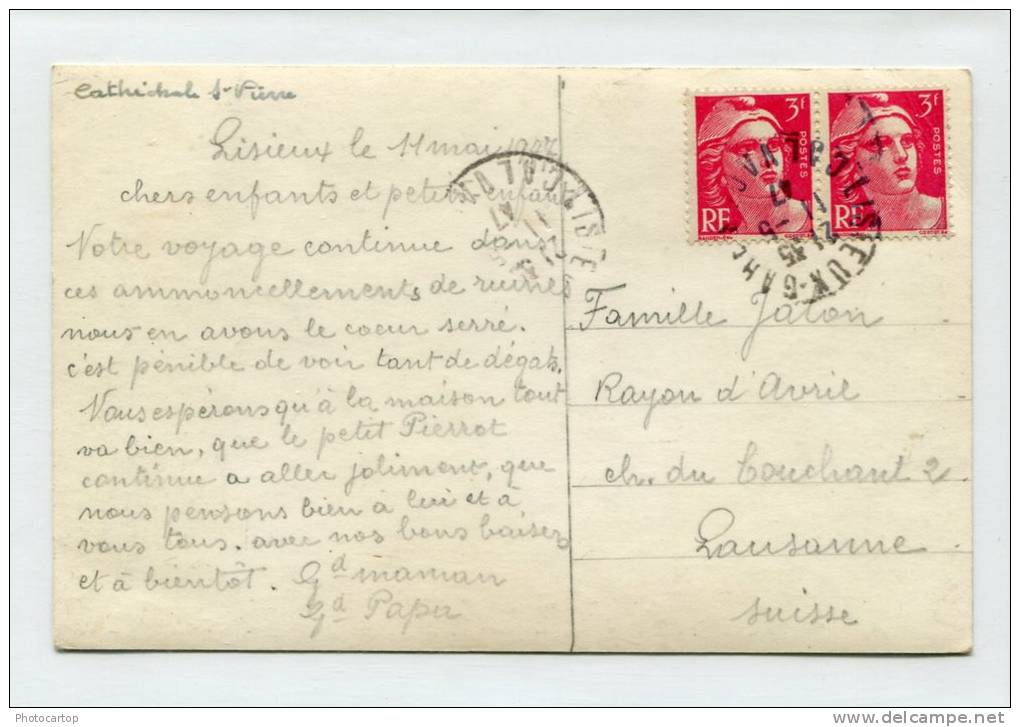 Cathédrale St Pierre
Lisieux le 11 mai 1947
chers enfants et petits enfants
Notre voyage continue dans
ces ammoncellements de ruines
nous en avons le coeur serré.
c'est pénible de voir tant de dégats.
Nous espérons qu'à la maison tout
va bien, que le petit Pierrot
continue a aller joliment, que
nous pensons bien à lui et à
vous tous. avec nos bons baisers
et à bientôt. Gd maman
Gd Papa
3F
POSTES
RF
3F
POSTES
RF
LISIEUX-GARE
CALVADOS
21 45
11 - 5
47
Famille Jaton
Rayon d'Avril
ch. du Couchant 2.
Lausanne
Suisse
Photocartop
http://www.delcampe.net